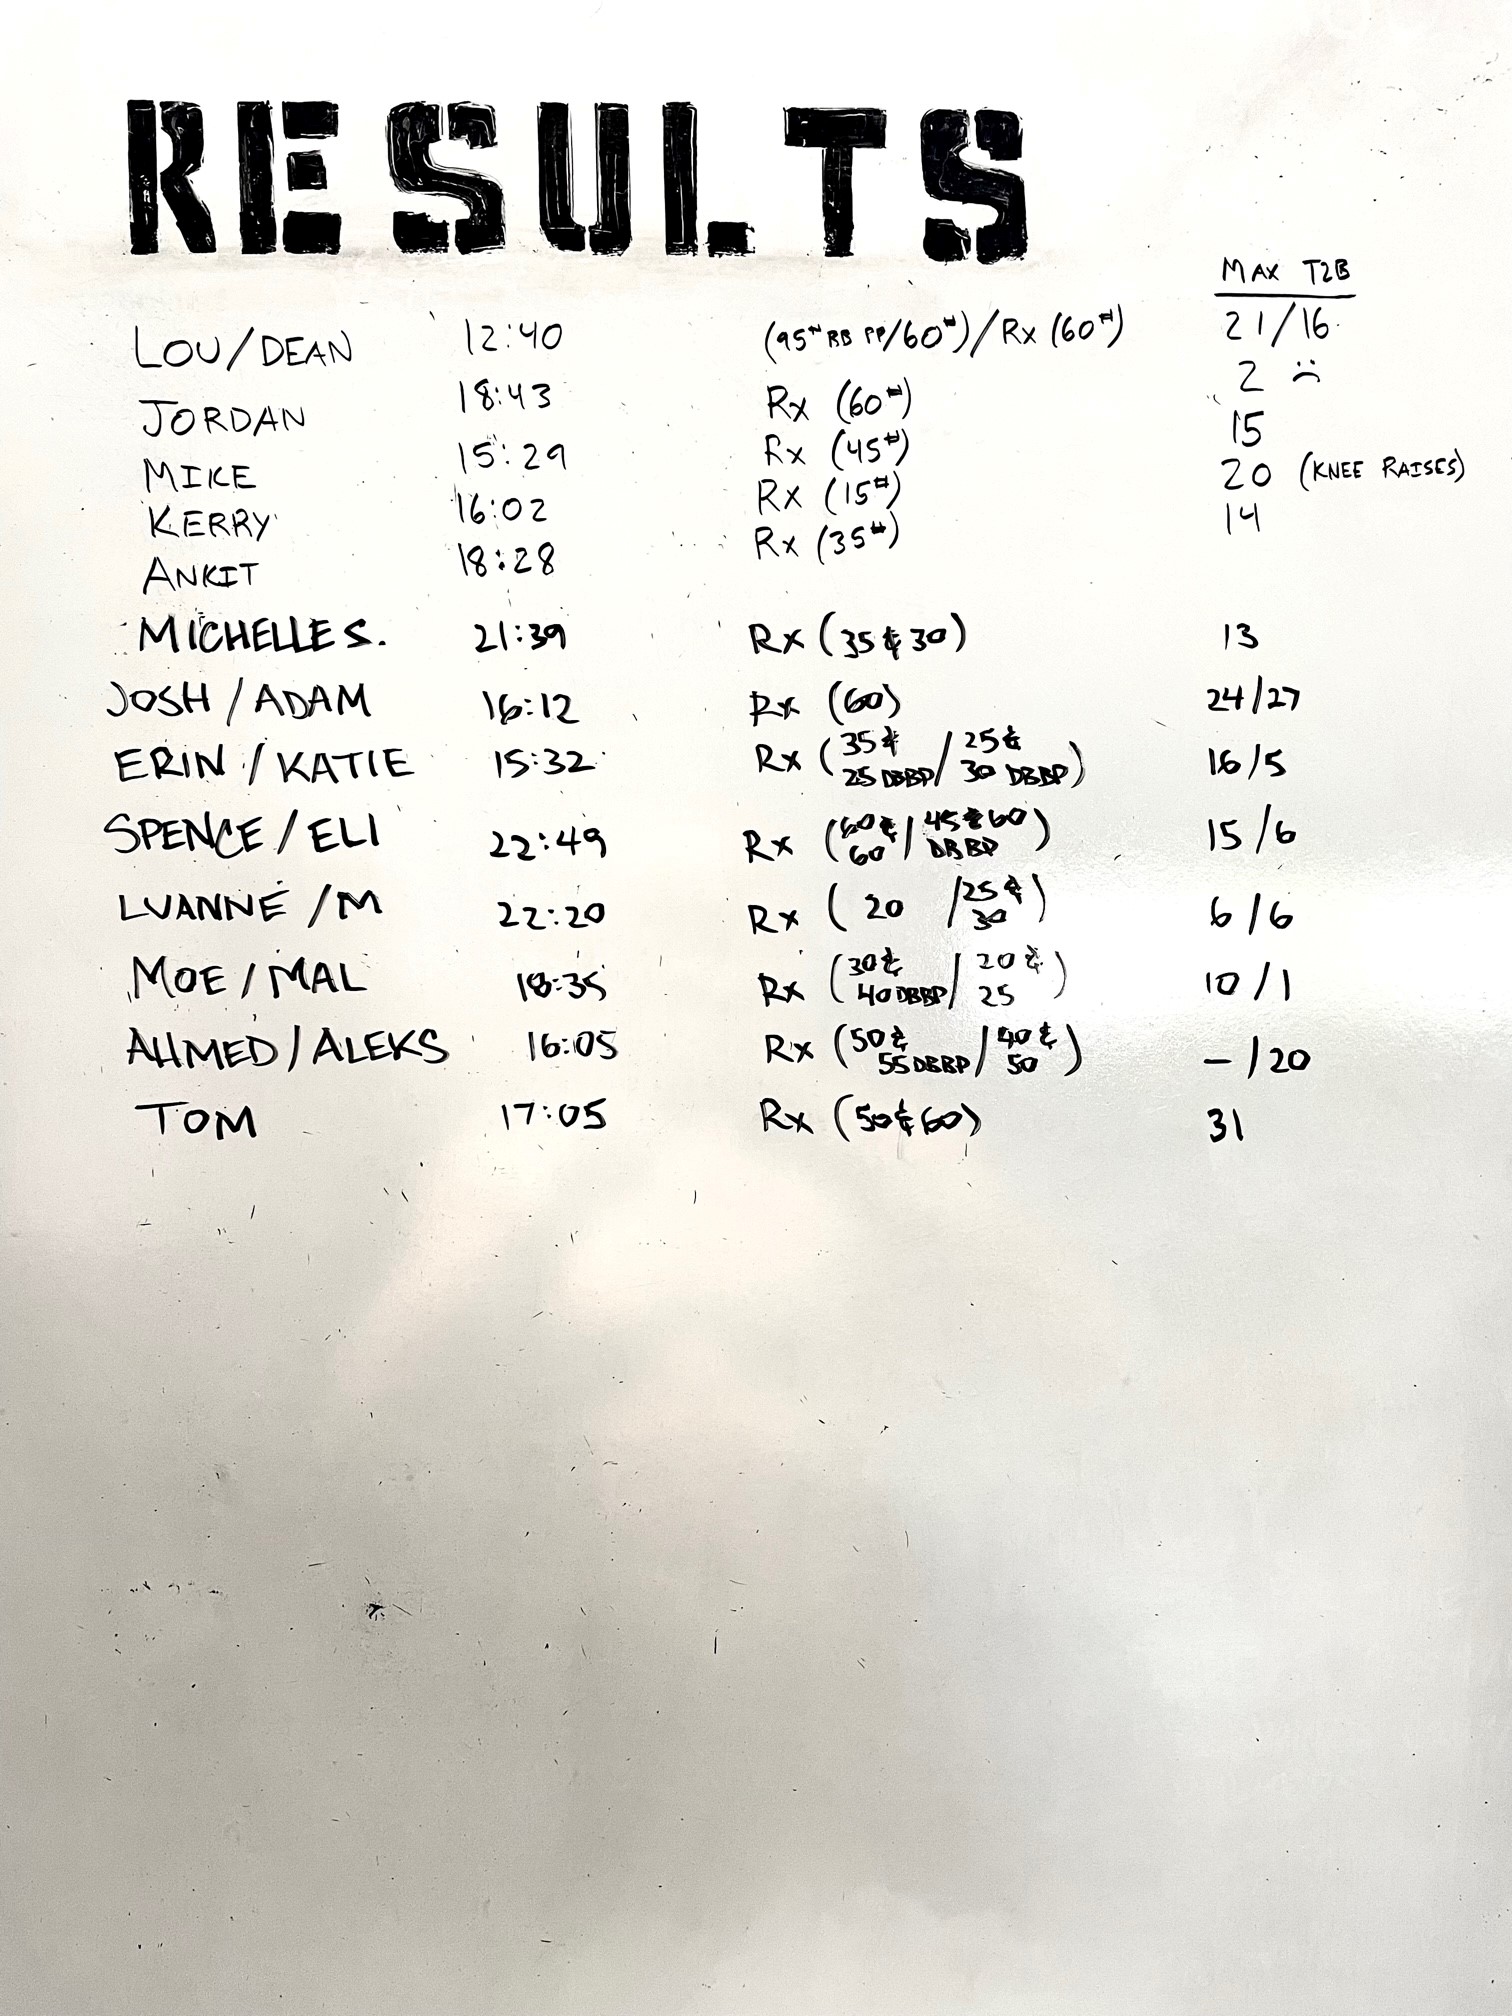 RESULTS
MAX T2B
LOU/DEAN 12:40 (95# BB PP/60#)/Rx (60#) 21/16
JORDAN 18:43 Rx (60#) 2 ☹
MIKE 15:29 Rx (45#) 15
KERRY 16:02 Rx (15#) 20 (KNEE RAISES)
ANKIT 18:28 Rx (35#) 14
MICHELLE S. 21:39 Rx (35 & 30) 13
JOSH / ADAM 16:12 Rx (60) 24/27
ERIN / KATIE 15:32 Rx (35 & 25 DBBP/ 25 & 30 DBBP) 16/5
SPENCE / ELI 22:49 Rx (60 & 60 / 45 & 60 DBBP) 15/6
LUANNE / M 22:20 Rx (20 / 25 & 30) 6/6
MOE / MAL 18:35 Rx (30 & 40 DBBP/ 20 & 25) 10/1
AHMED/ALEKS 16:05 Rx (50 & 55 DBBP/ 40 & 50) –/20
TOM 17:05 Rx (50 & 60) 31